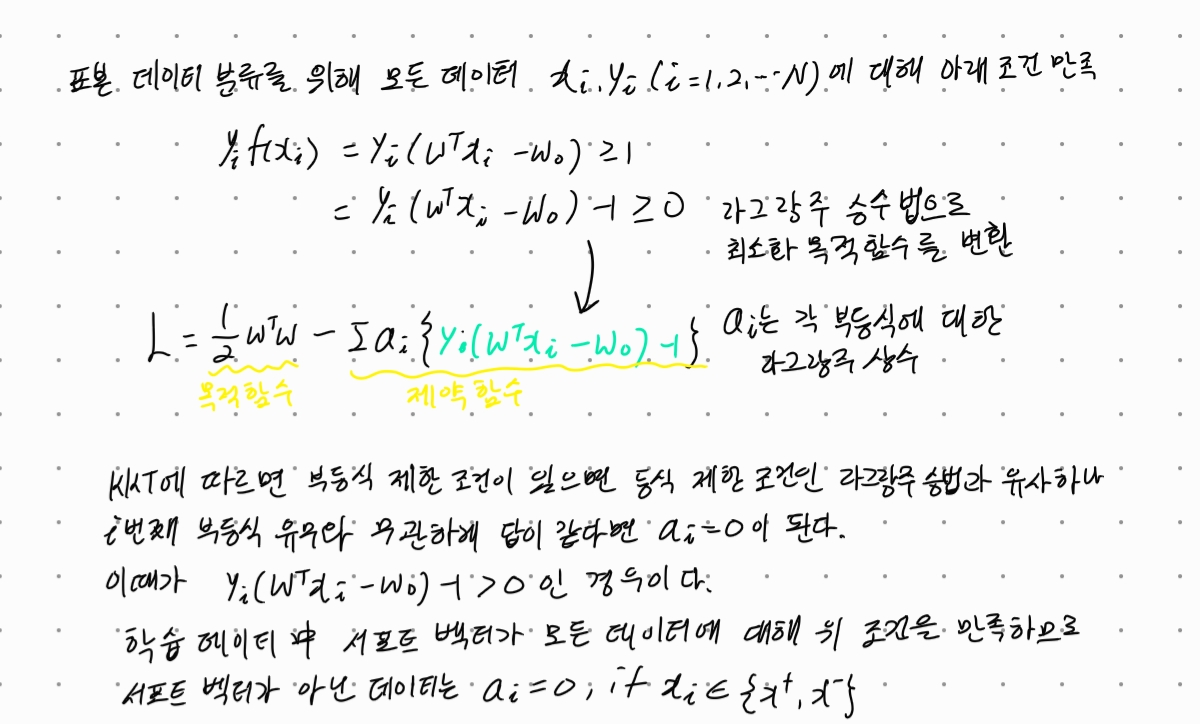 표본 데이터 분류를 위해 모든 데이터 xi, yi (i=1,2,…N)에 대해 아래 조건 만족
yi f(xi) = yi(wᵀxi - w₀) ≥ 1
= yi(wᵀxi - w₀) -1 ≥ 0 라그랑주 승수법으로
최소화 목적함수를 변환
L = ½ wᵀw - Σ ai {yi(wᵀxi - w₀) -1} ai는 각 부등식에 대한
라그랑주 상수
목적함수 제약함수
KKT에 따르면 부등식 제한 조건이 있으면 등식 제한 조건인 라그랑주 승법과 유사하나
i번째 부등식 유무와 무관하게 답이 같다면 ai=0이 된다.
이때가 yi(wᵀxi - w₀) -1 > 0 인 경우이다.
학습 데이터 中 서포트 벡터가 모든 데이터에 대해 위 조건을 만족하므로
서포트 벡터가 아닌 데이터는 ai=0, if xi ∈ {x⁺, x⁻}